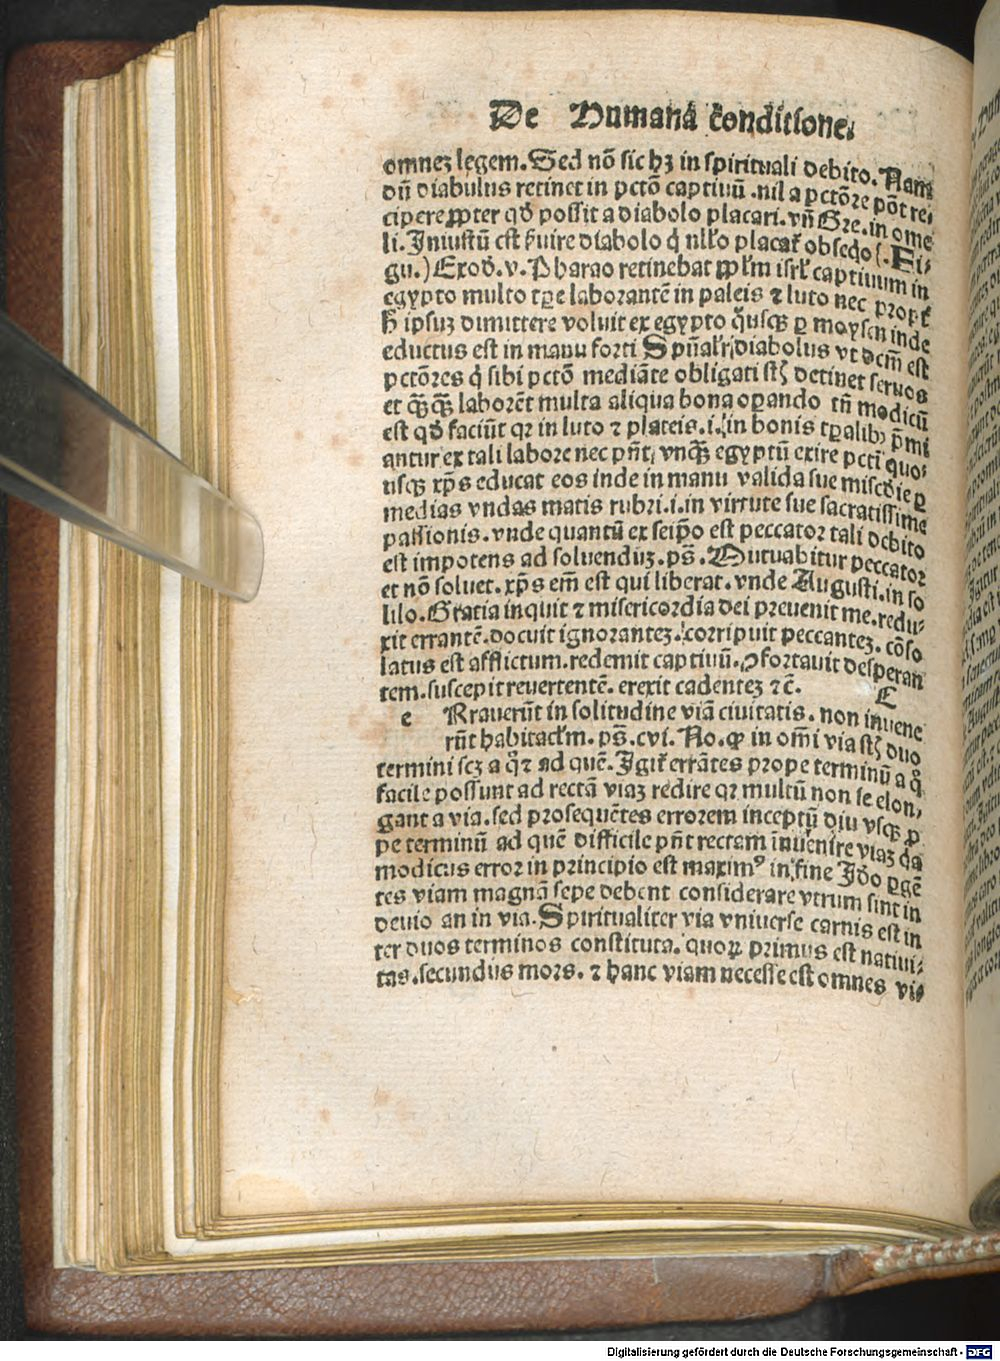 De Humana conditione.
omneʒ legem. Sed nō sic hʒ in spirituali debito. Nam
dū diabulus retinet in pctō captiuū. nil a pctōre pōt re⸗
cipere ꝓpter qđ possit a diabolo placari. vñ Gre. in ome
li. Iniustū est ẜuire diabolo q̇ nllo placat̉ obseq̇o (. Fi⸗
gu.) Exod̄. v. Pharao retinebat pp̄lm isrl̄ captiuum in
egypto multo tp̄e laborantē in paleis ⁊ luto nec propt̉
h̄ ipsuʒ dimittere voluit ex egypto q̊usqʒ ꝑ moysen inde
eductus est in manu forti Sp̄ual̉r diabolus vt dcm̄ est
pctōres q̇ sibi pctō mediāte obligati st̄ detinet seruos
et q̄ʒq̄ʒ laborēt multa aliqua bona oꝑando tn̄ modicū
est qđ faciūt qꝛ in luto ⁊ plateis. i. in bonis tꝑalibʒ p̄mi
antur ex tali labore nec pn̄t vnq̄ʒ egyptū exire pcti quo⸗
usqʒ xp̄s educat eos inde in manu valida sue miscd̄ie ꝑ
medias vndas matis rubri. i. in virtute sue sacratissime
passionis. vnde quantū ex seip̄o est peccator tali debito
est impotens ad soluenduʒ. ps̄. Mutuabitur peccator
et nō soluet. xp̄s em̄ est qui liberat. vnde Augusti. in so
lilo. Gratia inquit ⁊ misericordia dei preuenit me. redu⸗
xit errantē. docuit ignoranteʒ. corripuit peccanteʒ. cōso
latus est afflictum. redemit captiuū. ꝯfortauit desperan
tem. suscepit reuertentē. erexit cadenteʒ ⁊c̄. E
e Rrauerūt in solitudine viā ciuitatis. non inuene
rūt habitacl̄m. ps̄. cvi. No. ꝙ in om̄i via st̄ duo
termini scʒ a q̊ ⁊ ad quē. Igit̉ errātes prope terminū a q̊
facile possunt ad rectā viaʒ redire qꝛ multū non se elon⸗
gant a via. sed prosequētes errorem inceptū diu vsqʒ ꝓ
pe terminū ad quē difficile pn̄t rectam inuenire viaʒ da
modicus error in principio est maximꝰ in fine Id̄o ꝑgē
tes viam magnā sepe debent considerare vtrum sint in
deuio an in via. Spiritualiter via vniuerse carnis est in
ter duos terminos constituta. quoꝝ primus est natiui⸗
tas. secundus mors. ⁊ hanc viam necesse est omnes vi⸗
Digitalisierung gefördert durch die Deutsche Forschungsgemeinschaft - DFG